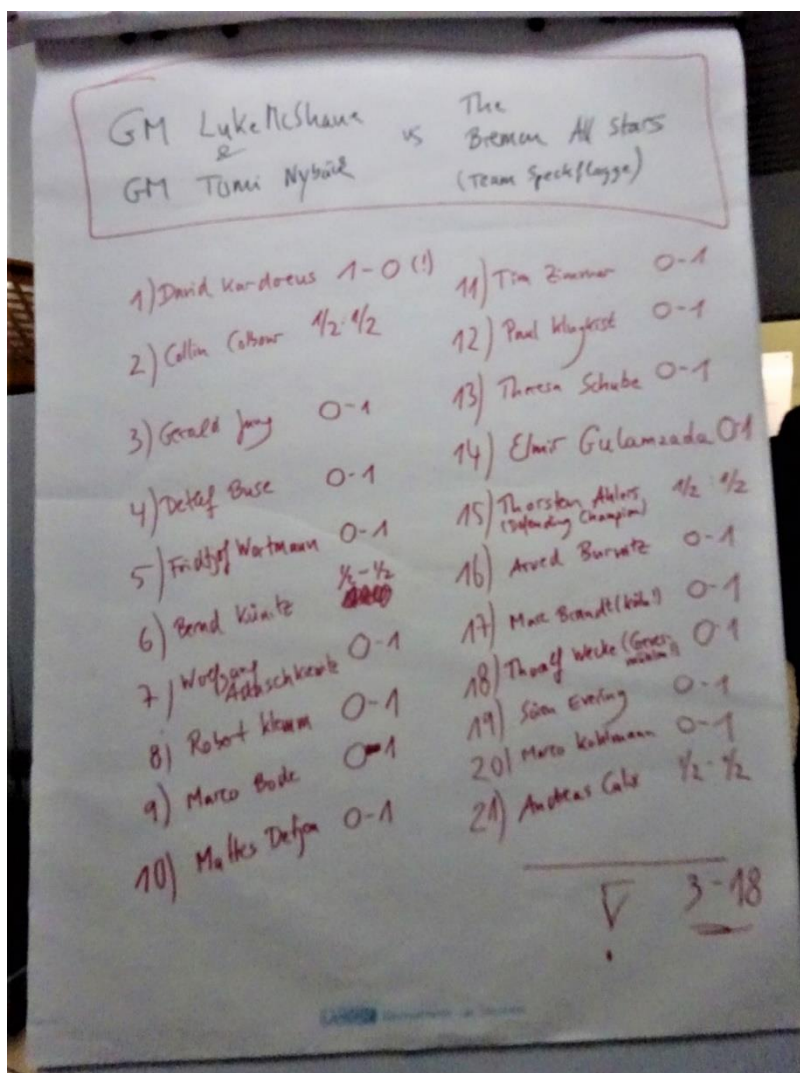 GM Luke McShane
&
GM Tomi Nybäck
vs
The
Bremen All Stars
(Team Speckflagge)
1) David Kardoeus 1-0 (!)
2) Collin Colbow 1/2-1/2
3) Gerald Jung 0-1
4) Detlef Buse 0-1
5) Fridtjof Wortmann 0-1
6) Bernd Künitz 1/2-1/2
7) Wolfgang
0-1
8) Robert Klemm 0-1
9) Marco Bode 0-1
10) Malte 0-1
11) Tim Zimmer 0-1
12) Paul Klugkist 0-1
13) Theresa Schube 0-1
14) Elmir Gulamzada 0-1
15) Thorsten Ahlers 1/2-1/2
(Defending Champion)
16) Arved Burnitz 0-1
17) Marc Brandt 0-1
18) Thoralf Wecke 0-1
19) Sören Evering 0-1
20) Marco Kohlmann 0-1
21) Andreas Calic 1/2-1/2
3-18